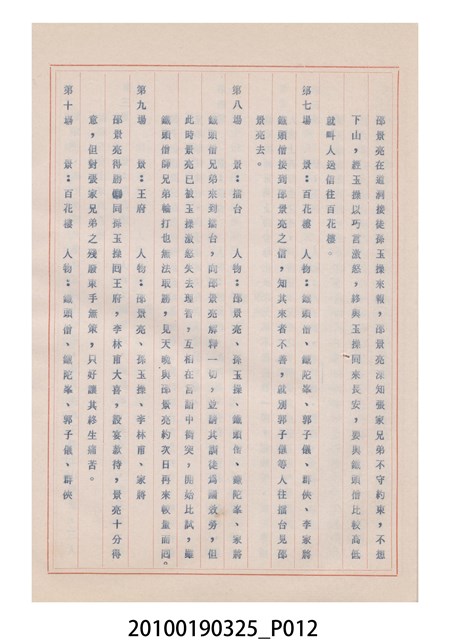 邵景亮在道洞接徒孫玉操來報，邵景亮深知張家兄弟不守約束，不想
下山，經玉操以巧言激怒，終與玉操同來長安，要與鐵頭僧比較高低
就叫人送信往百花樓。
第七場　景：百花樓　人物：鐵頭僧、鐵陀峯、郭子儀、群俠、李家將
鐵頭僧接到邵景亮之信，知其來者不善，就別郭子儀等人往擂台見邵
景亮去。
第八場　景：擂台　人物：邵景亮、孫玉操、鐵頭僧、鐵陀峯、家將
鐵頭僧兄弟來到擂台，向邵景亮解釋一切，並請其訓徒爲國效勞，但
此時景亮已被玉操激怒失去理智，互相在言語中衝突，開始比試，雖
鐵頭僧師兄弟輪打也無法取勝，見天晚與邵景亮約次日再來較量而回。
第九場　景：王府　人物：邵景亮、孫玉操、李林甫、家將
邵景亮得勝同孫玉操回王府，李林甫大喜，設宴款待，景亮十分得
意，但對張家兄弟之殘廢束手無策，只好讓其終生痛苦。
第十場　景：百花樓　人物：鐵頭僧、鐵陀峯、郭子儀、群俠
20100190325_P012